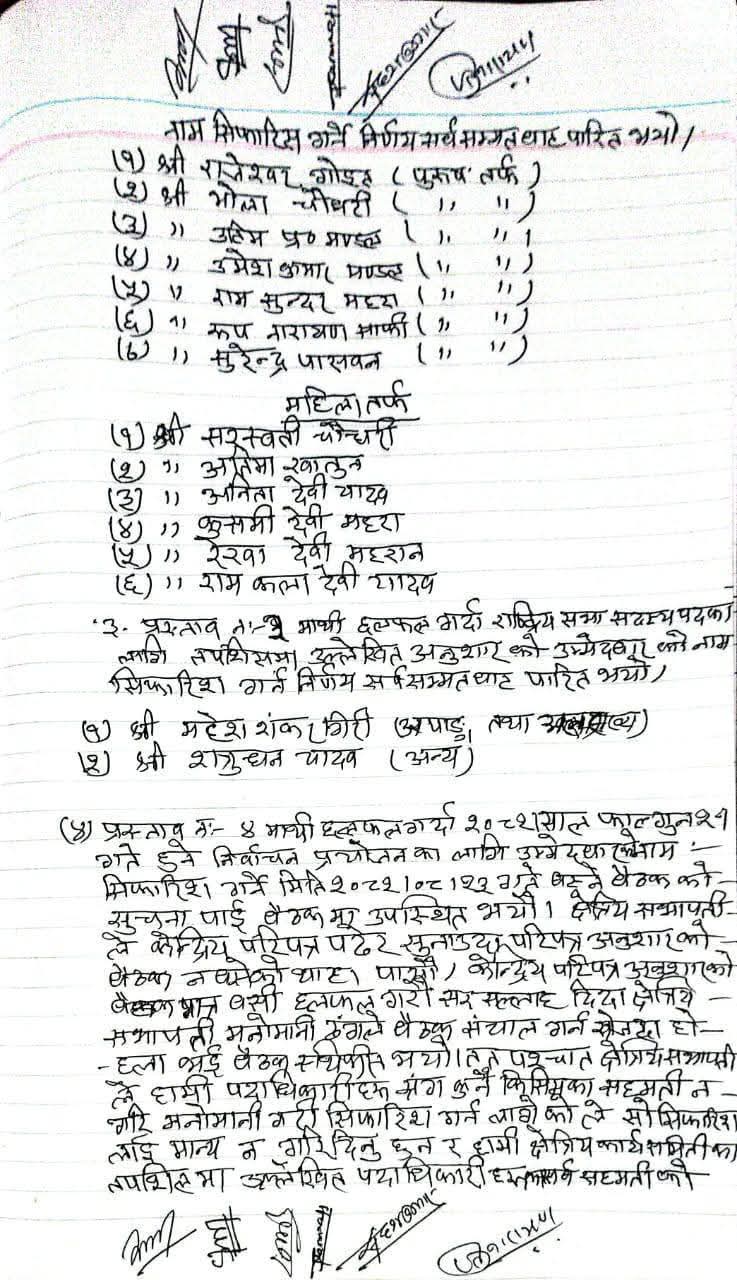 Hemant
नाम सिफारिस गर्ने निर्णय सर्वसम्मत बाट पारित भयो।
(१) श्री राजेश्वर गोइत (पुरुष तर्फ)
(२) श्री भोला चौधरी ( ,, ,, )
(३) ,, उत्तिम प्र० मण्डल ( ,, ,, )
(४) ,, उमेश कुमार मण्डल ( ,, ,, )
(५) ,, राम सुन्दर महरा ( ,, ,, )
(६) ,, रूप नारायण माफी ( ,, ,, )
(७) ,, सुरेन्द्र पासवन ( ,, ,, )
महिला तर्फ
(१) श्री सरस्वती चौधरी
(२) ,, खातुन
(३) ,, अनिता देवी यादव
(४) ,, कुसमी देवी महरा
(५) ,, रेखा देवी महरान
(६) ,, राम कला देवी यादव
३. प्रस्ताव नं:- ३ माथी छलफल गर्दा राष्ट्रिय सभा सदस्य पदका
लागि तपशिलमा उल्लेखित अनुशार को उम्मेदवार को नाम
सिफारिश गर्न निर्णय सर्वसम्मत बाट पारित भयो।
(१) श्री महेश शंकर गिरी (अपाङ्ग तथा
(२) श्री शत्रुधन यादव (अन्य)
(४) प्रस्ताव नं:- ४ माथी छलफल गर्दा २०८२ साल फाल्गुन २१
गते हुने निर्वाचन प्रयोजन का लागि उम्मेदवार को नाम :-
सिफारिश गर्ने मिति २०८२।०८।२३ गते बस्ने बैठक को -
सुचना पाई बैठक मा उपस्थित भयौ। क्षेत्रिय सभापती
ले केन्द्रिय परिपत्र पढेर सुनाउदा परिपत्र अनुशार को -
बैठक न बसेको पायौ। केन्द्रिय परिपत्र अनुशार को
बैठक मात्र बसी छलफल गरौं सर सल्लाह दिदा क्षेत्रिय -
सभापती मनोमानी ढंगले बैठक संचाल गर्न खोज्दा हो -
- हल्ला भई बैठक स्थगित भयो। तत पश्चात क्षेत्रिय सभापती
ले हामी पदाधिकारी हरु संग कुनै किसिमका सहमती न -
गरि मनोमानी गरी सिफारिश गर्न लागेको ले सो सिफारिश
लाई मान्य न गरिदिनु हुन र हामी क्षेत्रिय कार्य समितीका
तपशिल मा उल्लेखित पदाधिकारी हरुका सहमती को
Hemant